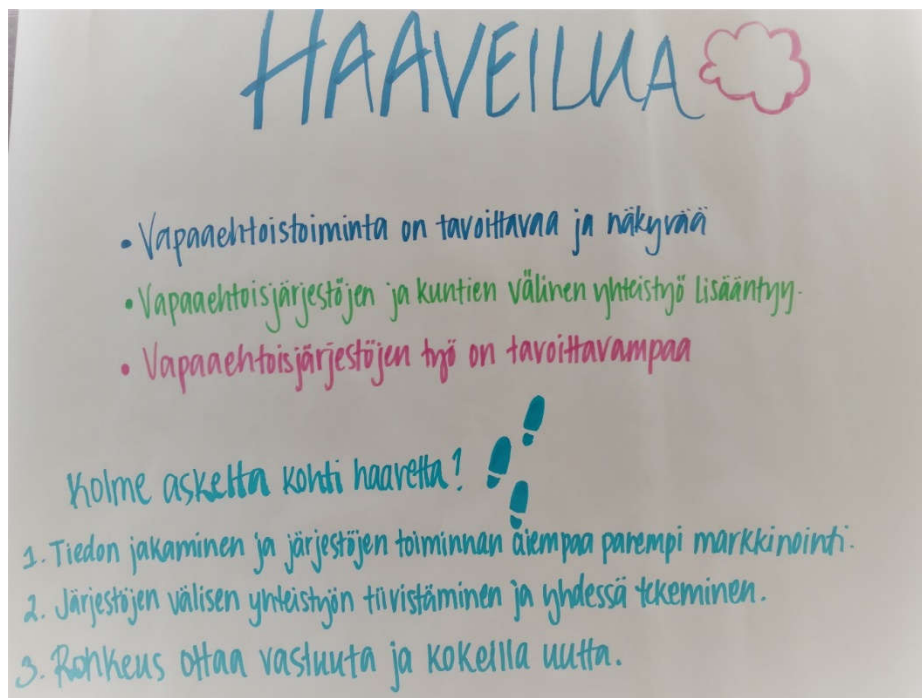 HAAVEILUA
• Vapaaehtoistoiminta on tavoittavaa ja näkyvää
• Vapaaehtoisjärjestöjen ja kuntien välinen yhteistyö lisääntyy.
• Vapaaehtoisjärjestöjen työ on tavoittavampaa
Kolme askelta kohti haavetta!
1. Tiedon jakaminen ja järjestöjen toiminnan aiempaa parempi markkinointi.
2. Järjestöjen välisen yhteistyön tiivistäminen ja yhdessä tekeminen.
3. Rohkeus ottaa vastuuta ja kokeilla uutta.